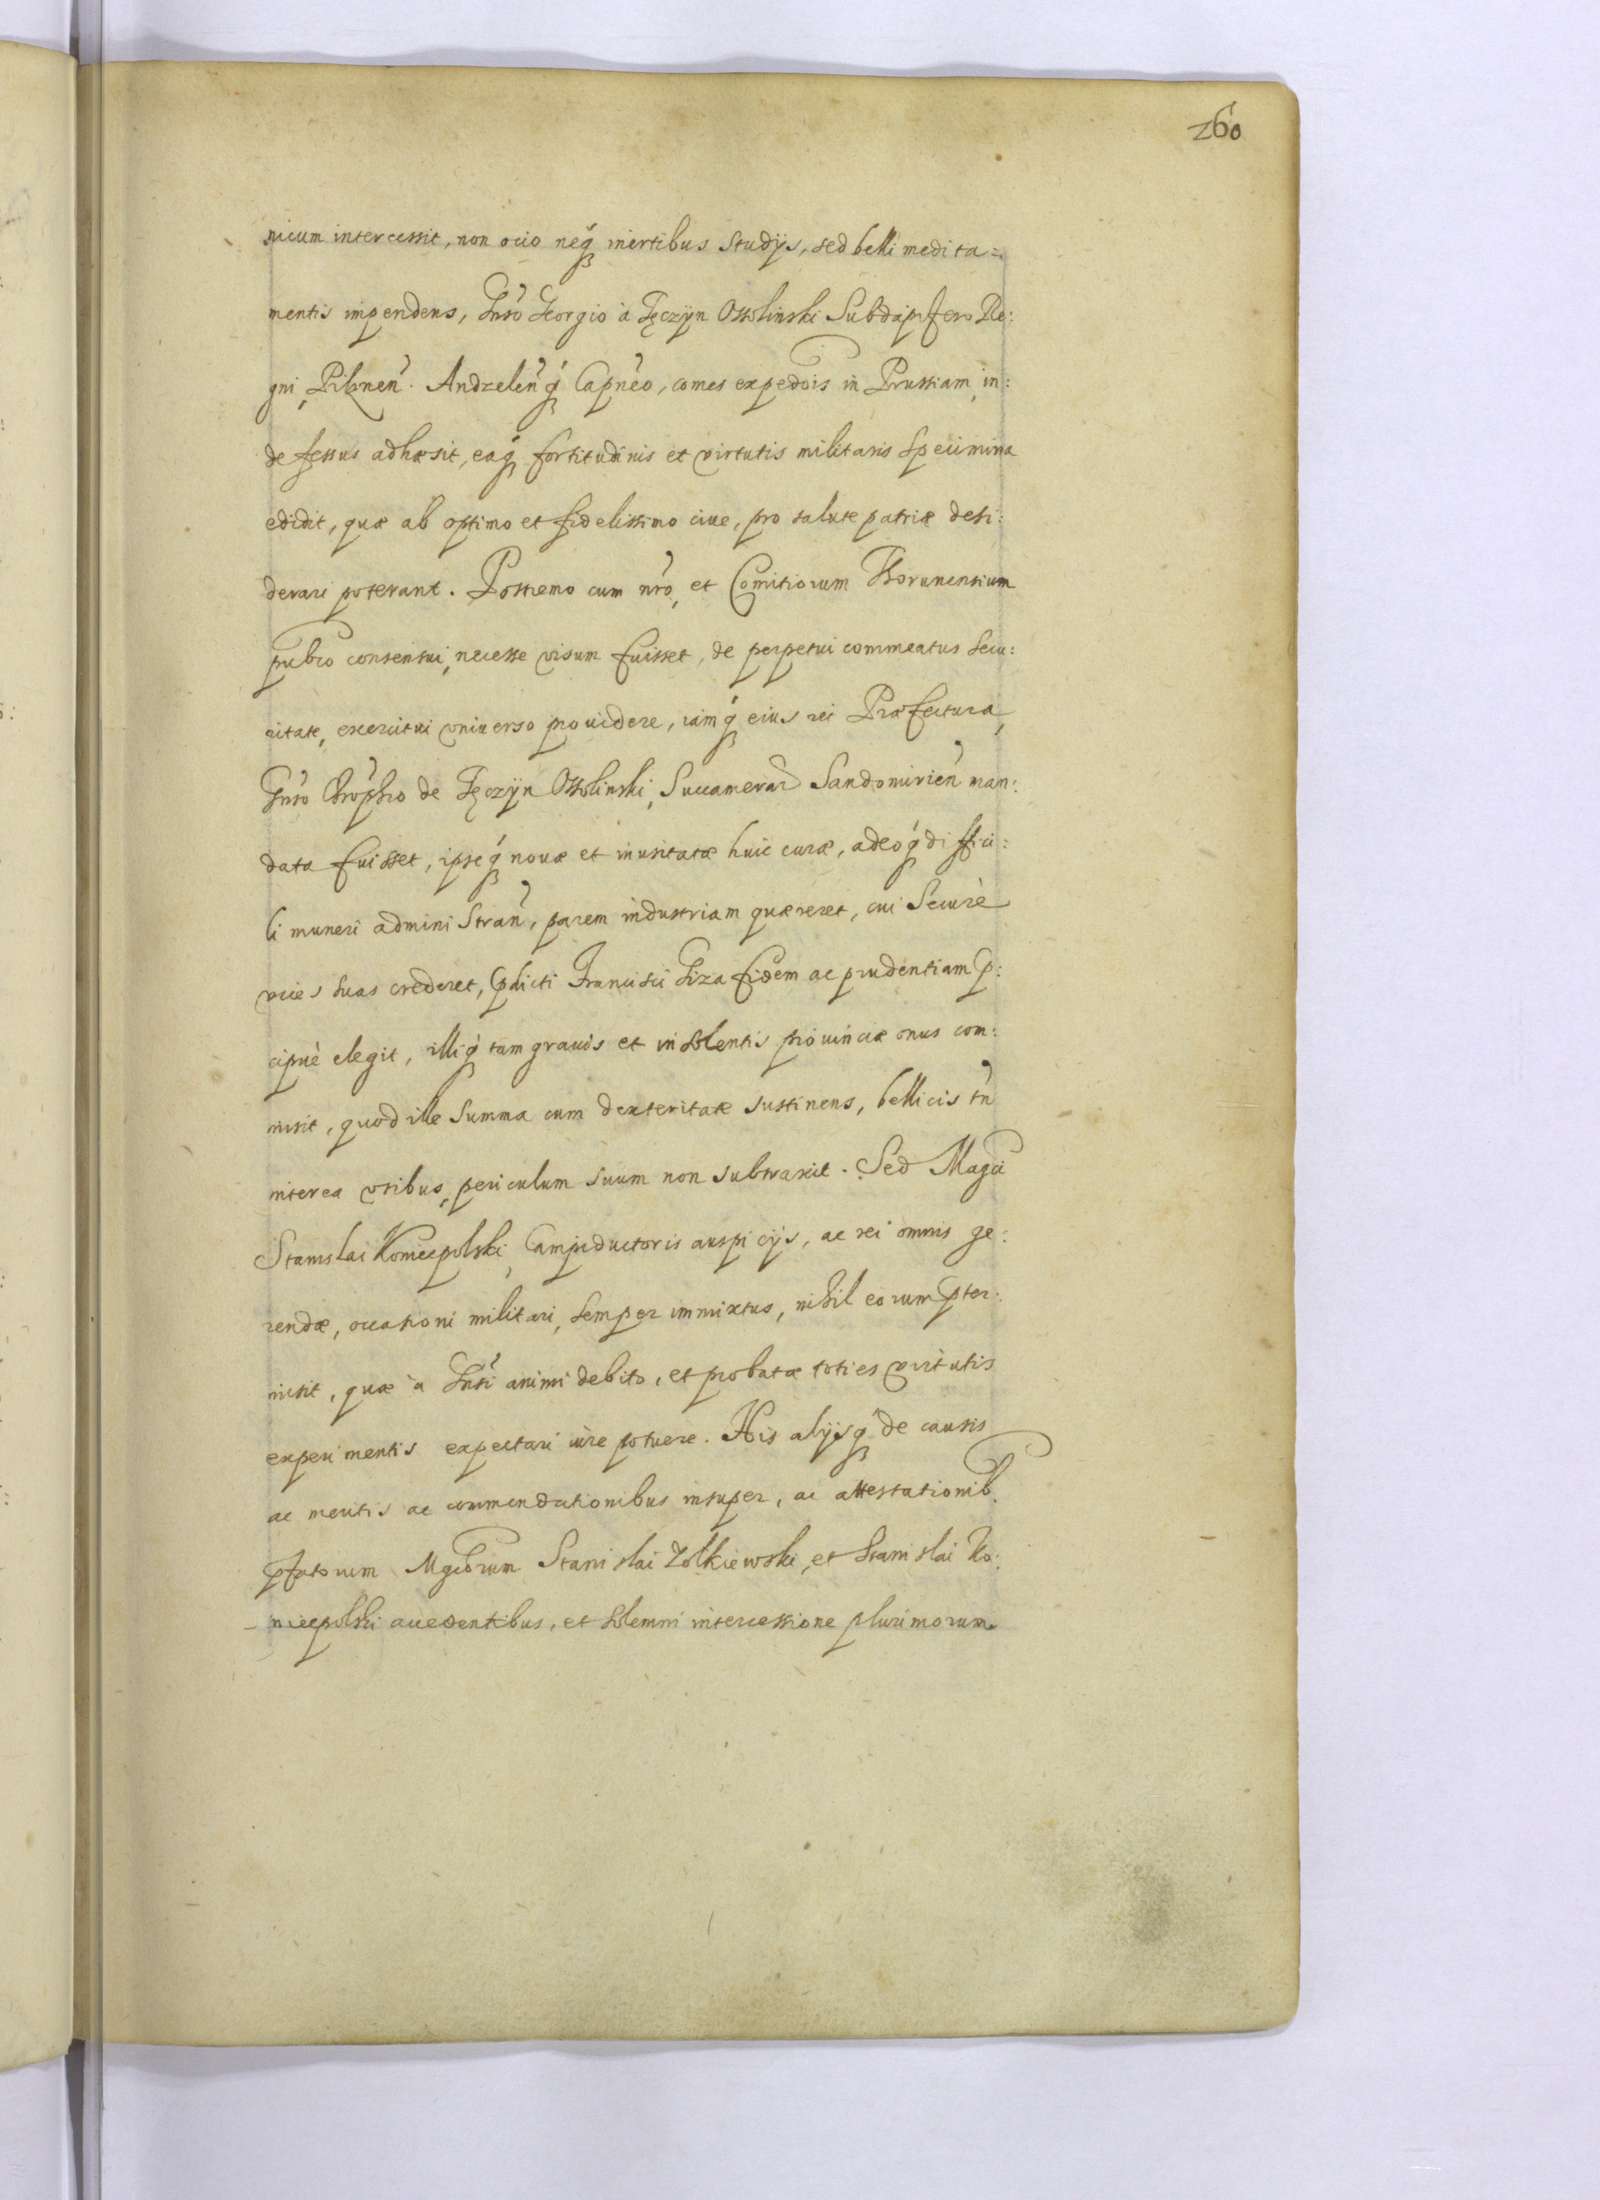 260
nicum intercessit, non ocio neq́ȝ inertibus Studijs, sed belli medita=
mentis impendens, Gnso Georgio à Tęczyn Ossolinski Subdapifero Re:
gni, Pilznen̄. Andzelen̄q́ȝ Capneo, comes expedois in Prussiam, in:
defessus adhæsit, eaq́ȝ fortitudinis et virtutis militaris Specimina
edidit, quæ ab optimo et fidelissimo ciue, pro salute patriæ desi:
derari poterant. Postremo cum nro, et Comitiorum Thorunensium
pubco consensui, necesse visum fuisset, de perpetui commeatus secu:
ritate, exercitui vniuerso prouidere, iamq́ȝ eius rei Præfectura,
Gnso Chrophro de Tęczyn Ossolinski, Succamerar Sandomirien̄ man:
data fuisset, ipseq́ȝ nouæ et inusitatæ huic curæ, adeoq́ȝ diffici:
li muneri administran̄, parem industriam quæreret, cui Securè
vices suas crederet, pdicti Francisci Giza fidem ac prudentiam p:
cipuè elegit, illiq́ȝ tam grauis et insolentis prouinciæ onus com:
misit, quod ille Summa cum dexteritate sustinens, bellicis tn̄
interea vsibus, periculum suum non subtraxit. Sed Magci
Stanislai Koniecpolski, Campiductoris auspicijs, ac rei omnis ge:
rendæ, occasioni militari, semper immixtus, nihil eorum pter:
misit, quæ à Gnsi animi debito, et probatæ toties virtutis
experimentis expectari iure potuere. His alijsq́ȝ de causis
ac meritis ac commendationibus insuper, ac attestationib.
pfatorum Mgcorum Stanislai Zolkiewski, et Stanislai Ko:
niecpolski accedentibus, et solemni intercessione plurimorum